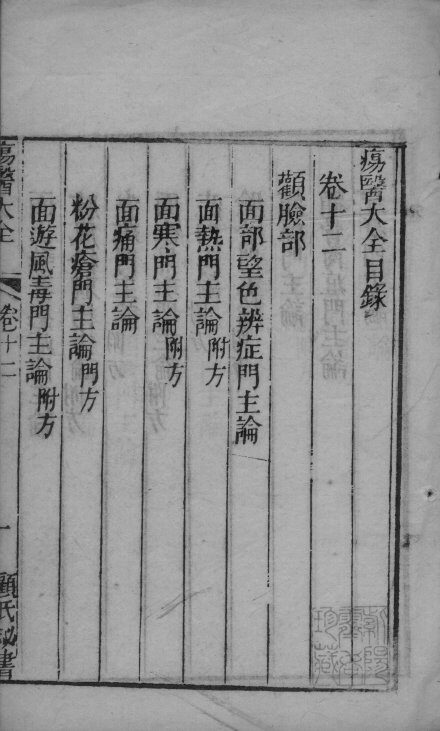 瘍醫大全目錄
卷十二
顴臉部
面部望色辨症門主論
面熱門主論附方
面寒門主論附方
面痛門主論
粉花瘡門主論門方
面遊風毒門主論附方
瘍醫大全
卷十二
一
顧氏秘書